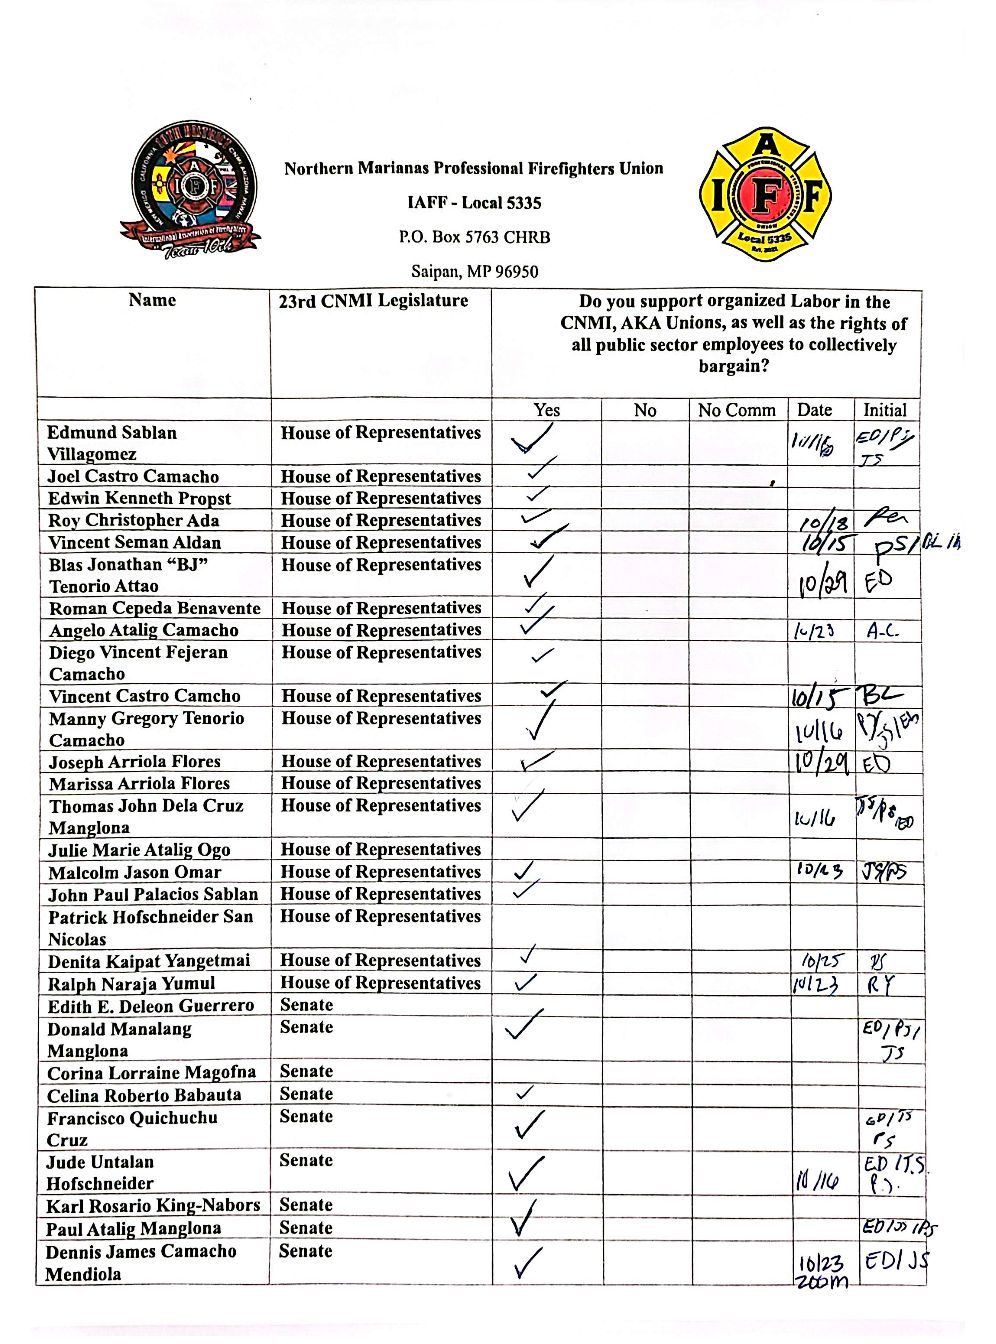 10TH DISTRICT
CALIFORNIA
CNMI ARIZONA HAWAII
NEW MEXICO
I A F F
International Association of Firefighters
"Team 10th"
Northern Marianas Professional Firefighters Union
IAFF - Local 5335
P.O. Box 5763 CHRB
Saipan, MP 96950
A
I F F
UNION
Local 5335
Est. 2021
Name 23rd CNMI Legislature Do you support organized Labor in the
CNMI, AKA Unions, as well as the rights of
all public sector employees to collectively
bargain?
Yes No No Comm Date Initial
Edmund Sablan House of Representatives ✓ 10/16 ED/PJ/
Villagomez JS
Joel Castro Camacho House of Representatives ✓
Edwin Kenneth Propst House of Representatives ✓
Roy Christopher Ada House of Representatives ✓ 10/18
Vincent Seman Aldan House of Representatives ✓ 10/15 PS/BL
Blas Jonathan “BJ” House of Representatives ✓ 10/29 ED
Tenorio Attao
Roman Cepeda Benavente House of Representatives ✓
Angelo Atalig Camacho House of Representatives ✓ 10/23 A-C.
Diego Vincent Fejeran House of Representatives ✓
Camacho
Vincent Castro Camcho House of Representatives ✓ 10/15 BL
Manny Gregory Tenorio House of Representatives ✓ 10/16
Camacho
Joseph Arriola Flores House of Representatives ✓ 10/29 ED
Marissa Arriola Flores House of Representatives
Thomas John Dela Cruz House of Representatives ✓ 10/16 JS/PS/ED
Manglona
Julie Marie Atalig Ogo House of Representatives
Malcolm Jason Omar House of Representatives ✓ 10/23 JS/PS
John Paul Palacios Sablan House of Representatives ✓
Patrick Hofschneider San House of Representatives
Nicolas
Denita Kaipat Yangetmai House of Representatives ✓ 10/25 PS
Ralph Naraja Yumul House of Representatives ✓ 10/23 RY
Edith E. Deleon Guerrero Senate
Donald Manalang Senate ✓ ED/PJ/
Manglona JS
Corina Lorraine Magofna Senate
Celina Roberto Babauta Senate ✓
Francisco Quichuchu Senate ✓ ED/JS
Cruz PS
Jude Untalan Senate ✓ 10/16 ED/J.S.
Hofschneider P.J.
Karl Rosario King-Nabors Senate
Paul Atalig Manglona Senate ✓ ED/JS/PS
Dennis James Camacho Senate ✓ 10/23 ED/JS
Mendiola 200M